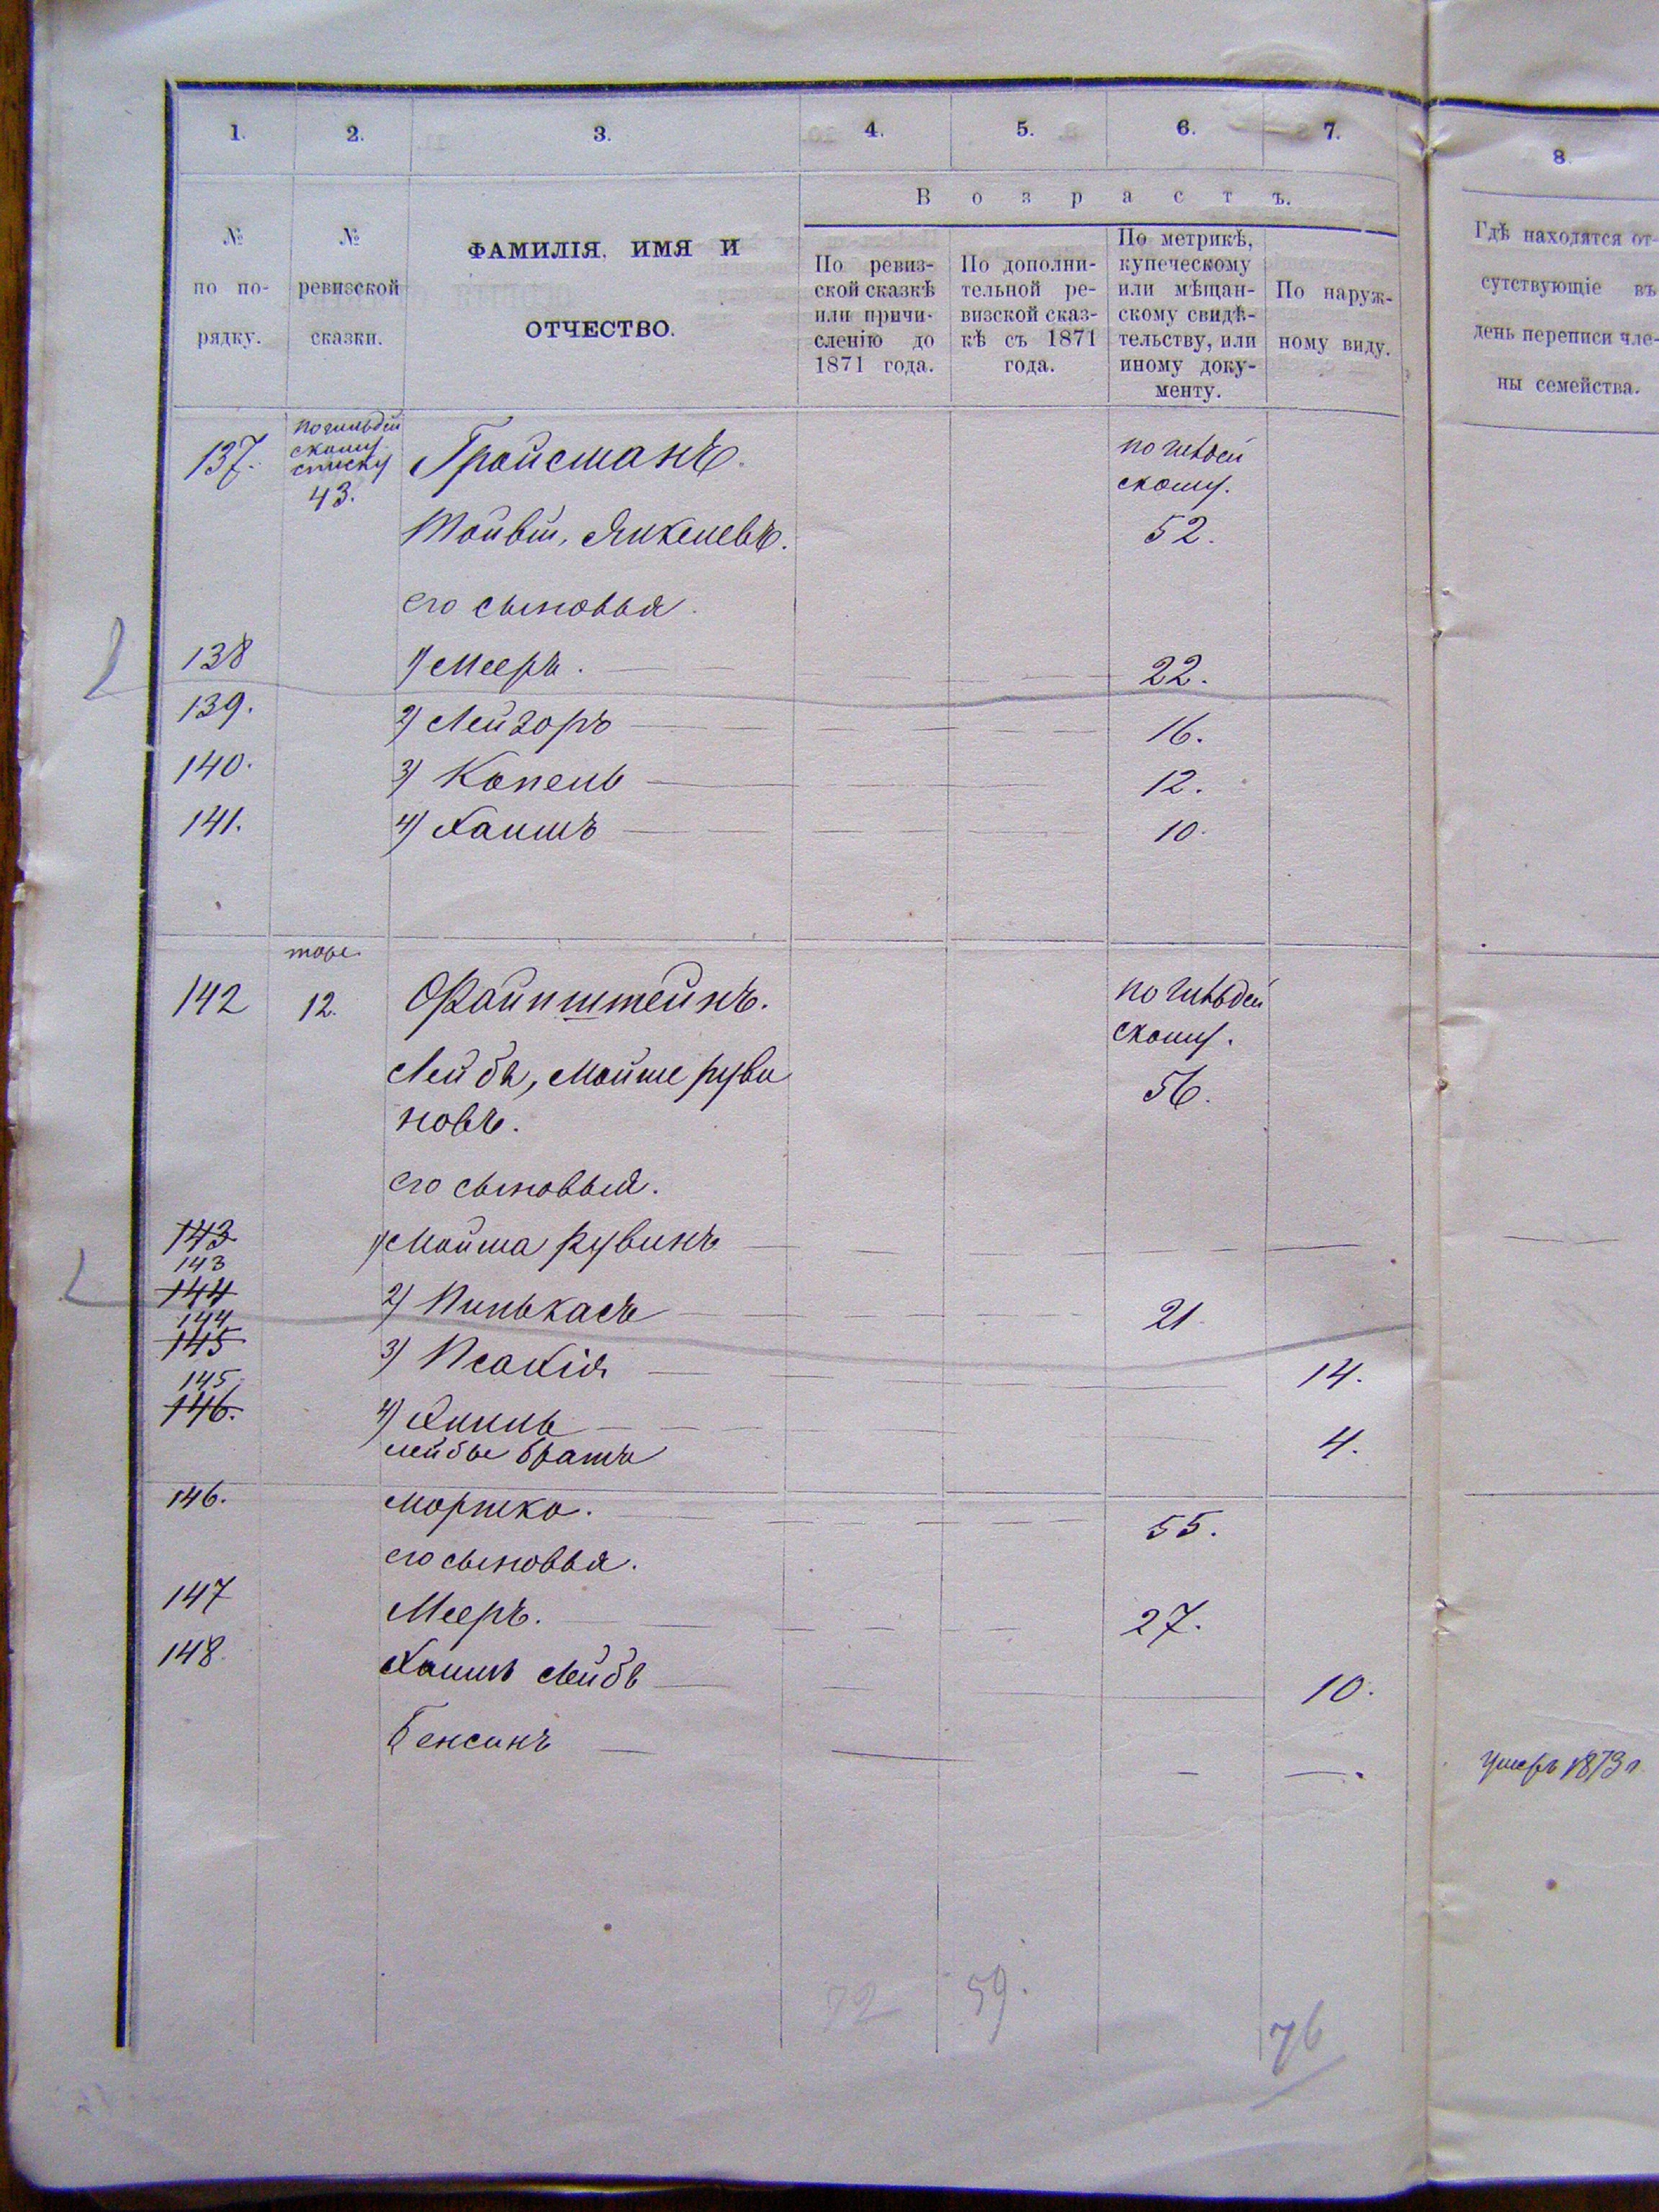 1. 2. 3. 4. 5. 6. 7.
8.
Возрастъ.
№ по по-рядку.
№ ревизской сказки.
ФАМИЛІЯ, ИМЯ И ОТЧЕСТВО.
По ревиз-
ской сказкѣ
или причи-
сленію до
1871 года.
По дополни-
тельной ре-
визской сказ-
кѣ съ 1871
года.
По метрикѣ,
купеческому
или мѣщан-
скому свидѣ-
тельству, или
иному доку-
менту.
По наруж-
ному виду.
Гдѣ находятся от-
сутствующіе въ
день переписи чле-
ны семейства.
по гильдей
скому
списку
137. 43. Гройсманъ. по гильдей
скому.
Тойвій, Янкелевъ. 52.
его сыновья.
138 1) Мееръ. 22.
139. 2) Лейзоръ 16.
140. 3) Копель 12.
141. 4) Хаимъ 10.
тоже
142 12. Файнштейнъ. по гильдей
скому.
Лейба, Мойше руви 56.
новъ.
его сыновья.
143 1) Мойша Рувинъ
143
144 2) Пинькасъ 21
144
145 3) Исакія 14.
145
146. 4) Хиль 4.
лейбы братъ
146. Моршко. 55.
его сыновья.
147 Мееръ. 27.
148. Хаимъ Лейбъ 10.
Бенсинъ умеръ 1873 г
72 59. 76